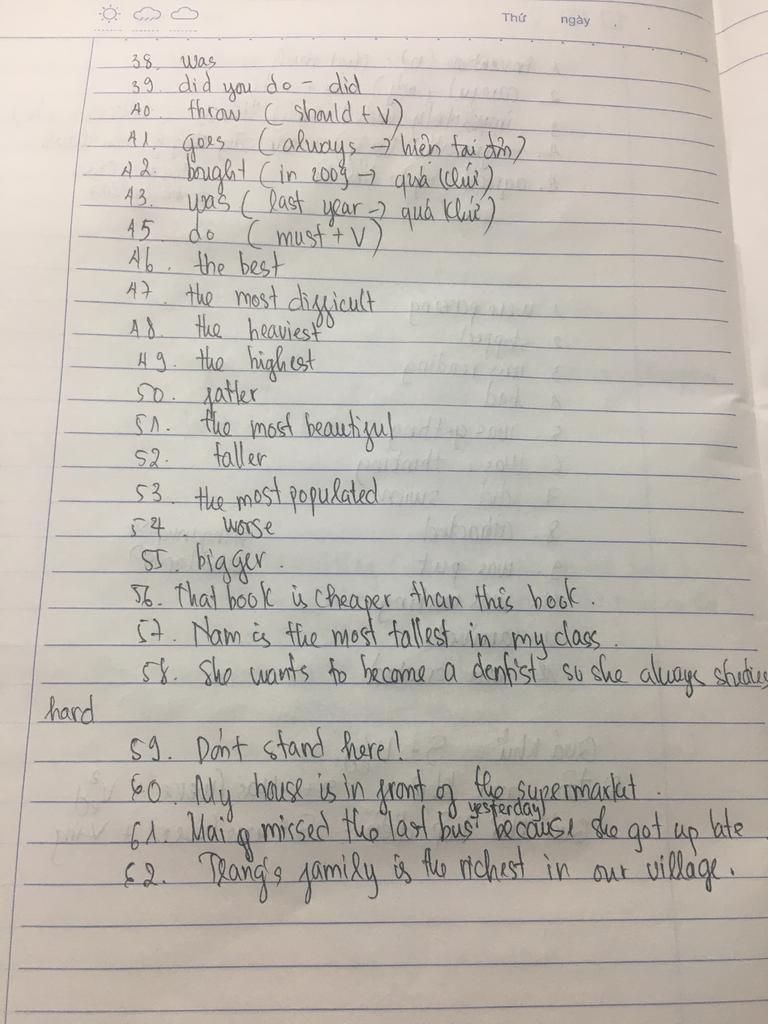 Thứ ngày . .
38. was
39. did you do - did
40. throw ( should + V)
41. goes ( always → hiện tại đơn)
42. bought ( in 2009 → quá khứ)
43. was ( last year → quá khứ)
45. do ( must + V)
46. the best
47. the most difficult
48. the heaviest
49. the highest
50. fatter
51. the most beautiful
52. taller
53. the most populated
54. worse
55. bigger.
56. That book is cheaper than this book.
57. Nam is the most tallest in my class.
58. She wants to become a dentist so she always studies
hard
59. Don't stand here!
60. My house is in front of the supermarket.
61. Mai missed the last bus yesterday because she got up late
62. Trang's family is the richest in our village.